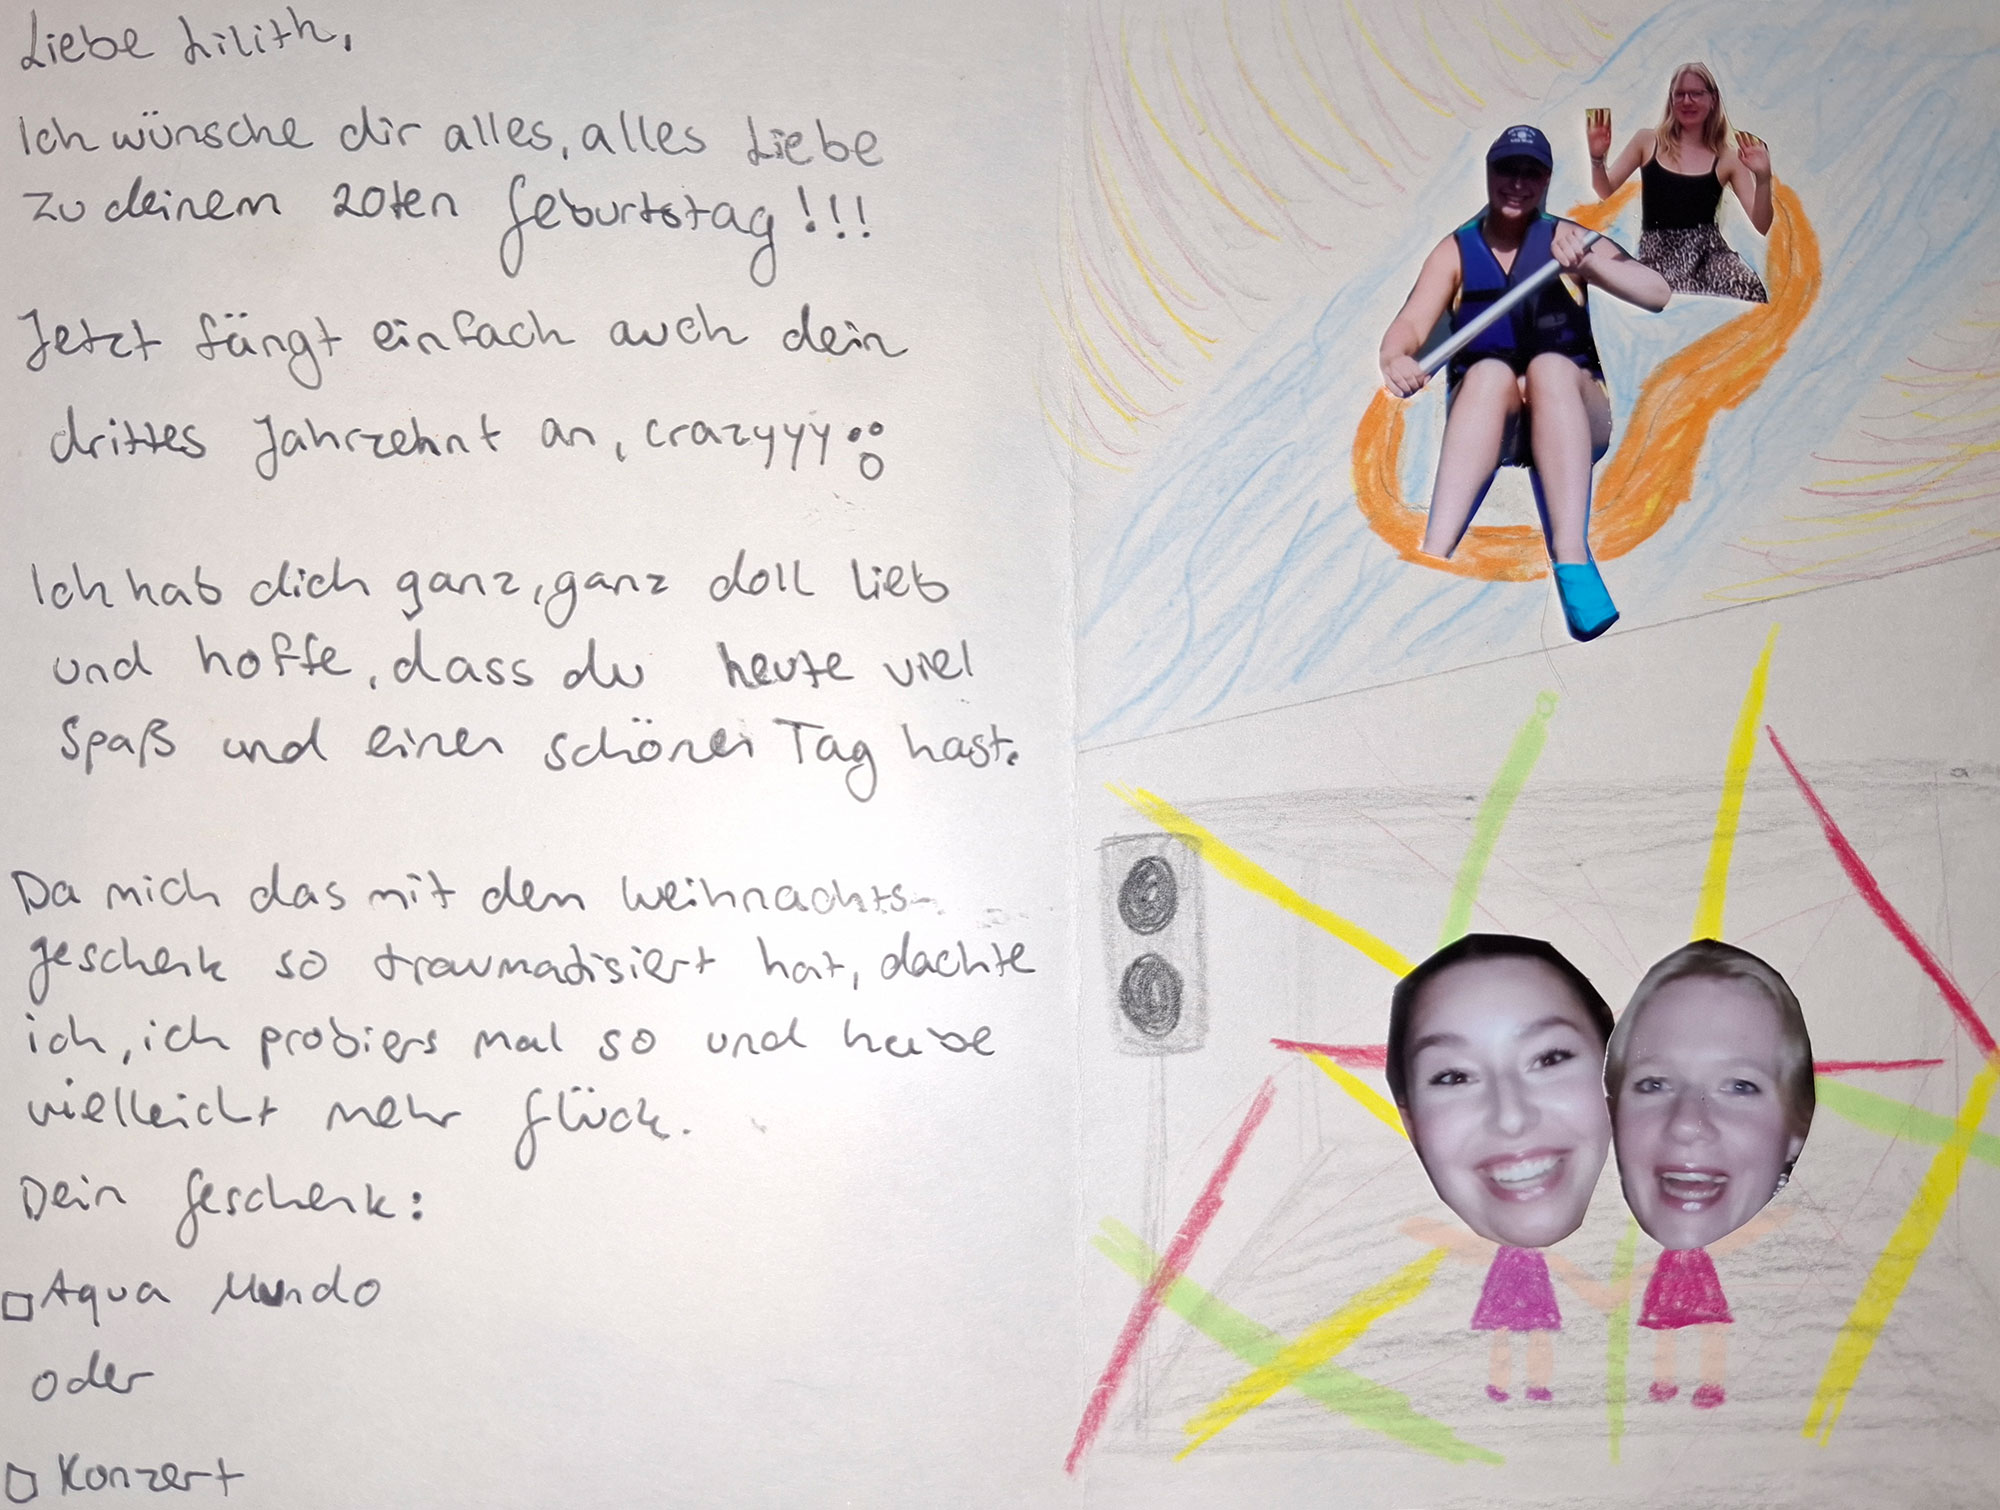 Liebe Lilith,
Ich wünsche dir alles, alles Liebe
zu deinem 20ten Geburtstag!!!
Jetzt fängt einfach auch dein
drittes Jahrzehnt an, crazyyy
Ich hab dich ganz, ganz doll lieb
und hoffe, dass du heute viel
Spaß und einen schönen Tag hast.
Da mich das mit den Weihnachts-
geschenk so traumatisiert hat, dachte
ich, ich probiers mal so und habe
vielleicht mehr Glück.
Dein Geschenk:
Aqua Mundo
oder
Konzert